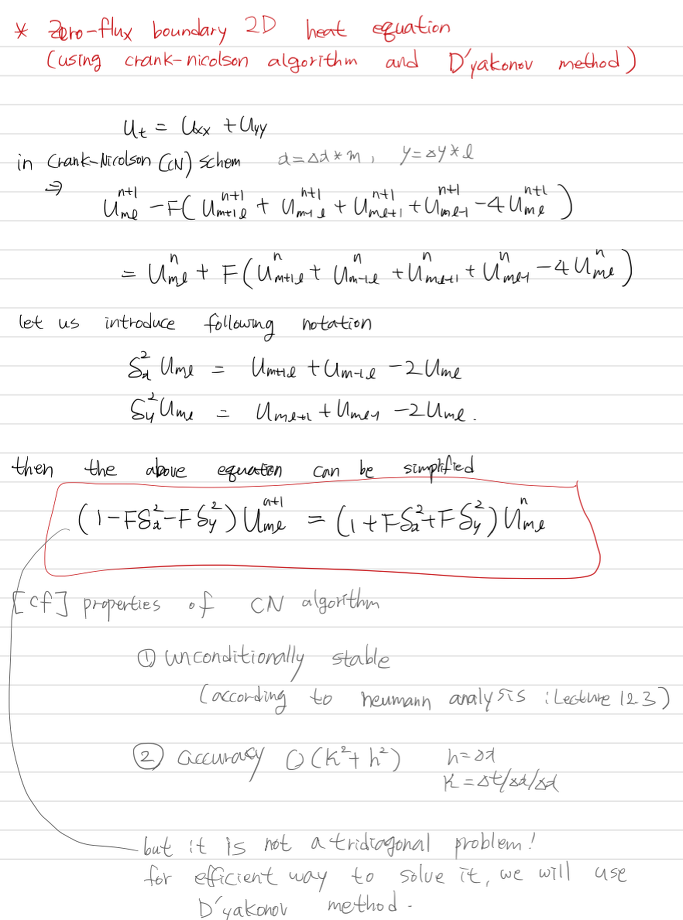 * Zero-flux boundary 2D heat equation
(using crank-nicolson algorithm and D'yakonov method)
u_t = u_xx + u_yy
in Crank-Nicolson (CN) schem x=Δx*m, y=Δy*l
⇒ U_{ml}^{n+1} - F(U_{m+1 l}^{n+1} + U_{m-1 l}^{n+1} + U_{m l+1}^{n+1} + U_{m l-1}^{n+1} - 4U_{ml}^{n+1})
= U_{ml}^{n} + F(U_{m+1 l}^{n} + U_{m-1 l}^{n} + U_{m l+1}^{n} + U_{m l-1}^{n} - 4U_{ml}^{n})
let us introduce following notation
δ_x^2 U_{ml} = U_{m+1 l} + U_{m-1 l} - 2U_{ml}
δ_y^2 U_{ml} = U_{m l+1} + U_{m l-1} - 2U_{ml}.
then the above equation can be simplified
(1 - Fδ_x^2 - Fδ_y^2) U_{ml}^{n+1} = (1 + Fδ_x^2 + Fδ_y^2) U_{ml}^{n}
[cf] properties of CN algorithm
① unconditionally stable
(according to neumann analysis : Lecture 12.3)
② accuracy O(k²+h²) h=Δx
k=Δt/Δx/Δx
but it is not a tridiagonal problem!
for efficient way to solve it, we will use
D'yakonov method.